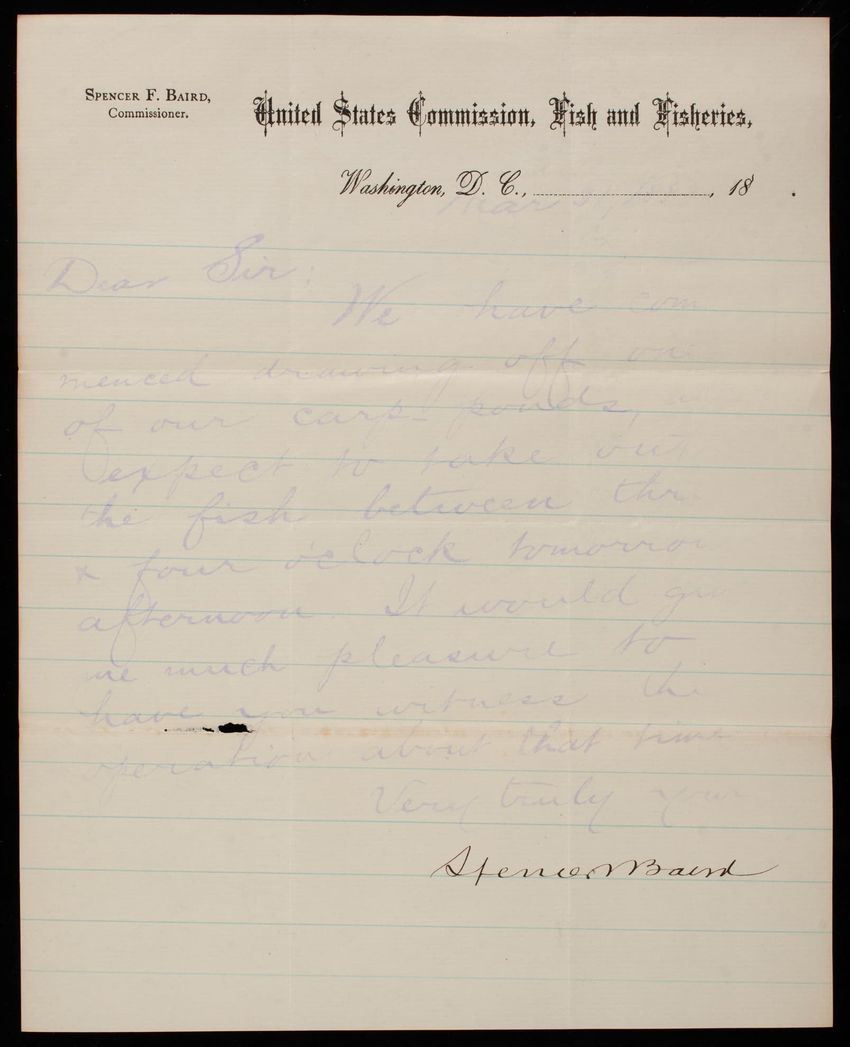 SPENCER F. BAIRD,
Commissioner.
United States Commission, Fish and Fisheries,
Washington, D. C., Mar , 18 .
Dear Sir:
We have com
menced drawing off on
of our carp ponds,
expect to take out
the fish between thr
& four o'clock tomorrow
afternoon. It would giv
me much pleasure to
have you witness the
operation about that time
Very truly your
Spencer F Baird